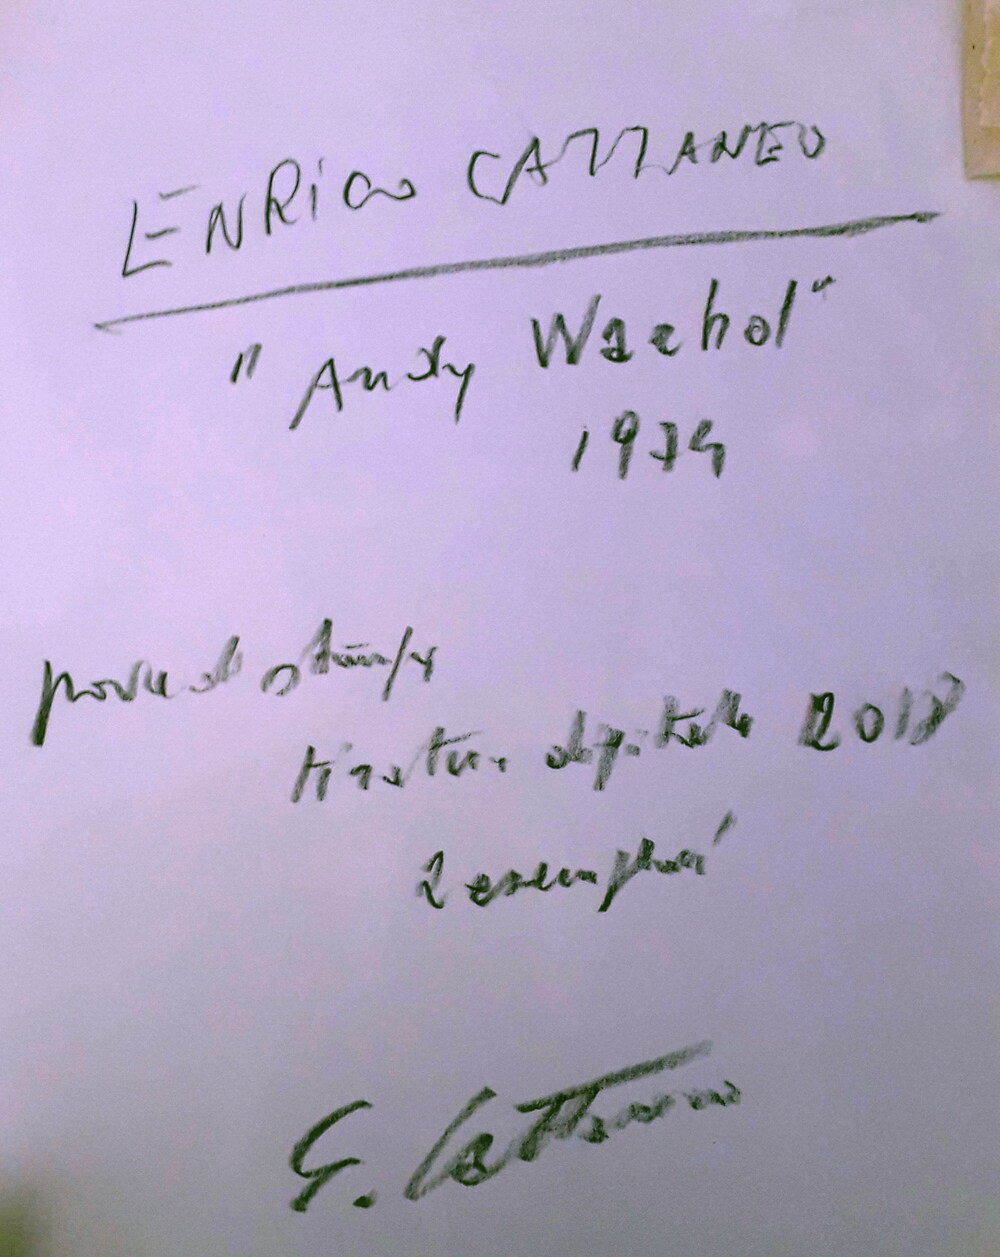 ENRICO CATTANEO
"Andy Warhol"
1974
prova di stampa
tiratura digitale 2018
2 esemplari
E. Cattaneo